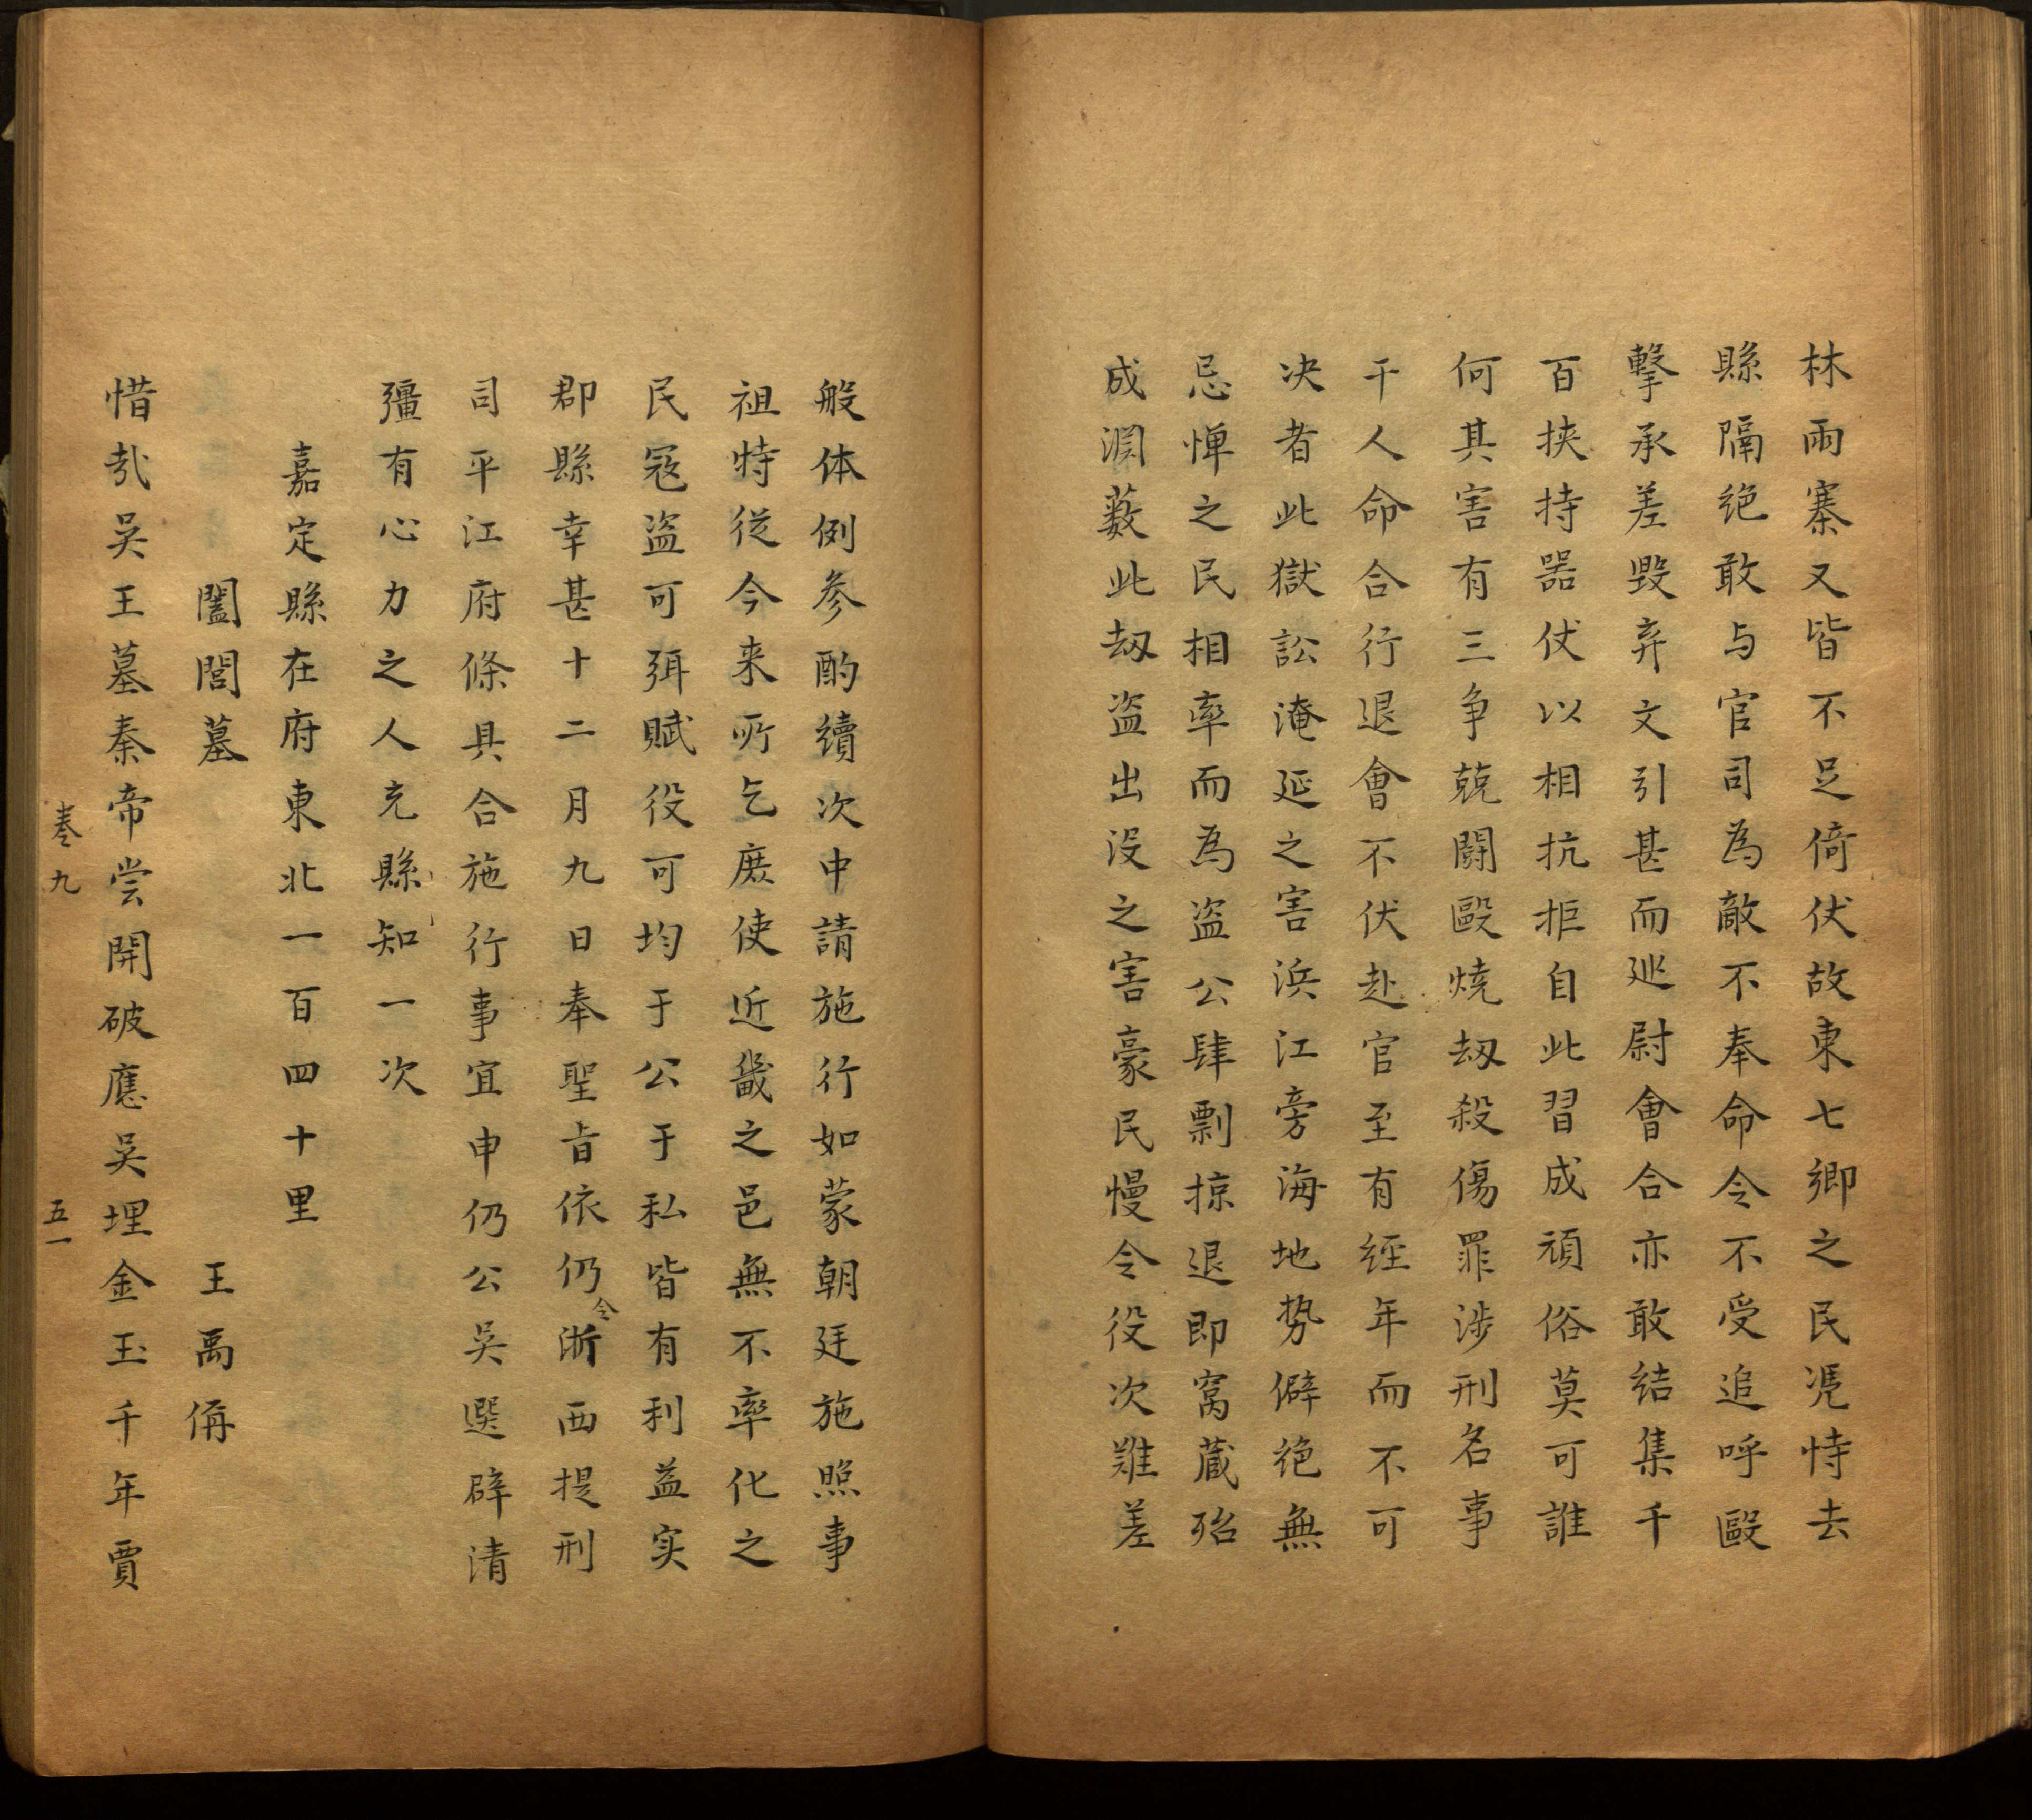 林兩寨又皆不足倚伏故東七鄉之民凴恃去
縣隔絶敢与官司為敵不奉命令不受追呼毆
擊承差毀弃文引甚而廵尉會合亦敢結集千
百挾持噐仗以相抗拒自此習成頑俗莫可誰
何其害有三争兢鬭毆燒刼殺傷罪涉刑名事
干人命合行退會不伏赴官至有経年而不可
决者此獄訟淹延之害浜江旁海地势僻绝無
忌惮之民相率而為盗公肆剽掠退即窩藏殆
成淵薮此刼盗出没之害豪民慢令役次難差
般体例参酌續次申請施行如蒙朝廷施照事
祖特從今来所乞庶使近畿之邑無不率化之
民寇盗可弭賦役可均于公于私皆有利益实
郡縣幸甚十二月九日奉聖旨依仍令浙西提刑
司平江府條具合施行事宜申仍公吴選辟清
彊有心力之人充縣知一次
嘉定縣在府東北一百四十里
闔閭墓 王禹偁
惜㢤吴王墓秦帝尝開破應吴埋金玉千年賈
卷九 五一